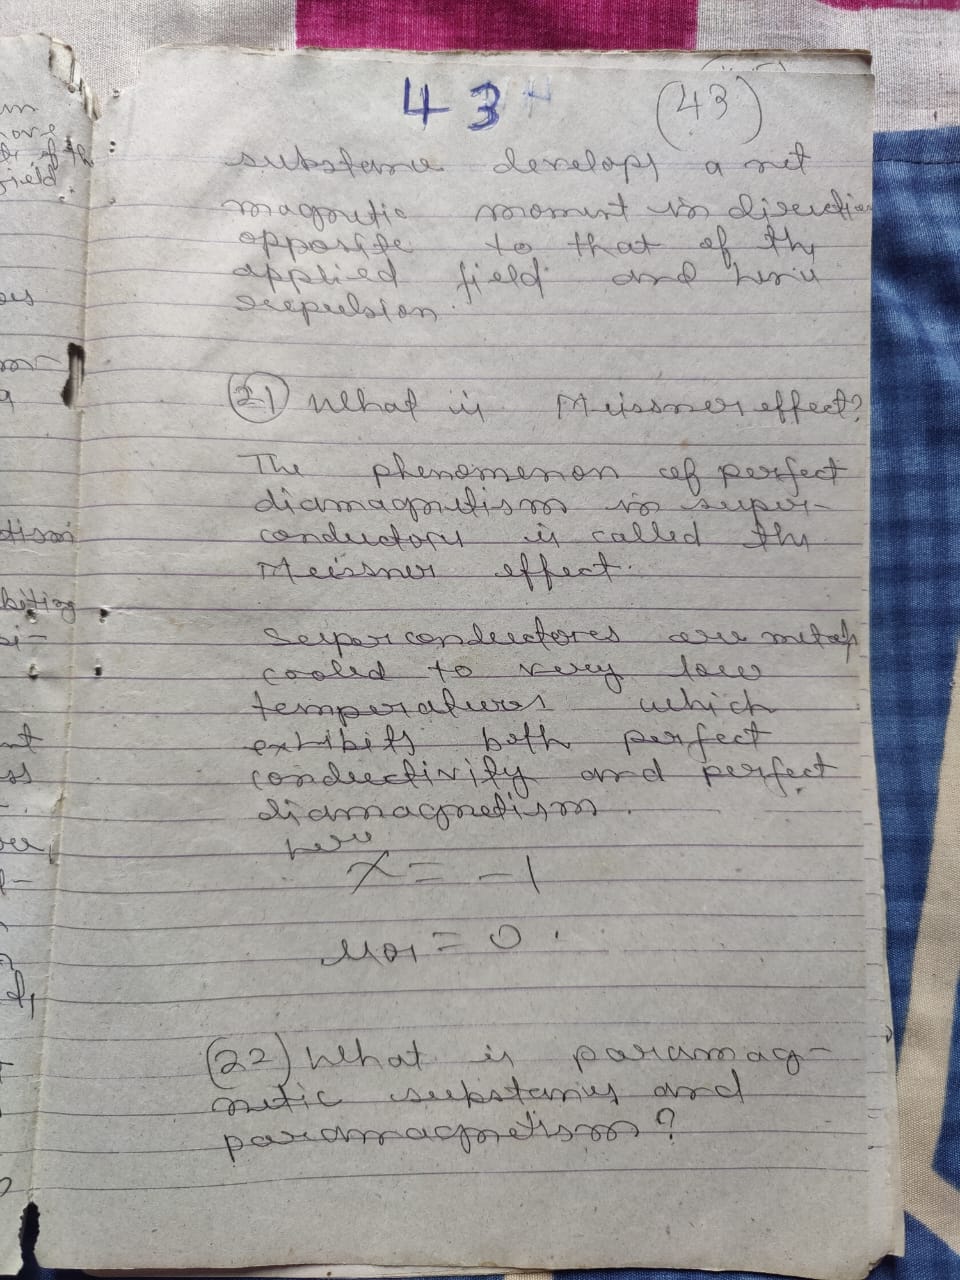 43
(43)
substance develops a net
magnetic moment in direction
opposite to that of the
applied field and hence
repulsion.
(21) What is Meissner effect?
The phenomenon of perfect
diamagnetism in super-
conductors is called the
Meissner effect.
Superconductores are metals
cooled to very low
temperatures which
exhibits both perfect
conductivity and perfect
diamagnetism.
here
χ = -1
μr = 0.
(22) What is paramag-
netic substances and
paramagnetism?